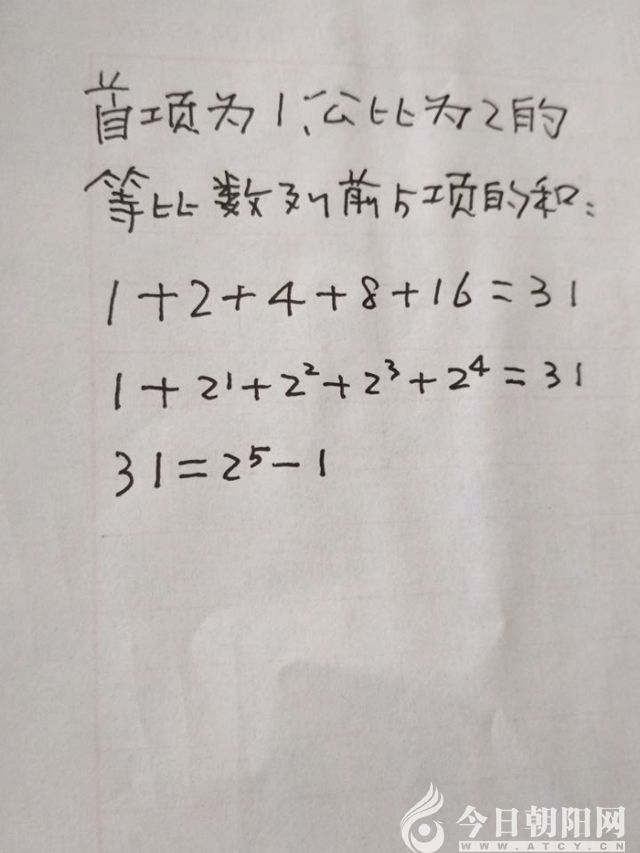 首项为1,公比为2的
等比数列前5项的和:
1+2+4+8+16=31
1+2¹+2²+2³+2⁴=31
31=2⁵-1
今日朝阳网
WWW.ATCY.CN